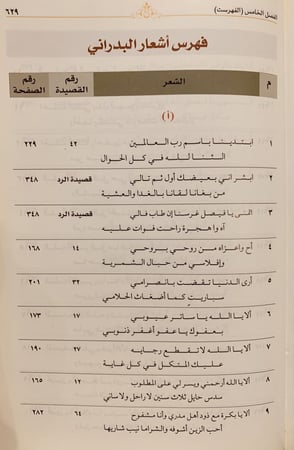 الفصل الخامس (الفهرست) ٦٢٩
فهرس أشعار البدراني
م الشعر رقم القصيدة رقم الصفحة
(أ)
١ ابتدينا باسم رب العالمين ٤٢ ٢٢٩
الثنا لله في كل الحوال
٢ ابشر اني بعيضك أول ثم تالي قصيدة الرد ٣٤٨
من بغانا لقانا بالغدا والعشية
٣ اثنى يا فيصل غرسنا إن طاب فالي قصيدة الرد ٣٤٨
آه وا هجرة راحت فوات عليه
٤ أح واعزاه من روحي بروحي ١٤ ١٦٨
وإفلاسي من حبال الشمرية
٥ أرى الدنيا تقضت بانصرامي ٣٢ ٢٠١
سباريت كما أضغاث الحلامي
٦ ألا يا الله يا ساتر عيوبي ١٧ ١٧٣
بعفوك يا عفو أغفر ذنوبي
٧ ألا يا الله لا تقطع رجايه ٢٧ ١٩٠
عليك المتكل في كل غاية
٨ ألا يا الله أرحمني ويسر لي على المطلوب ١٢ ١٦٥
سدس حايل ثلاث سنين لا راحل ولا ساني
٩ ألا يا بكرة مع ذود أهل مدري وأنا مشفوح ٦٤ ٢٨٢
أحب الزين أشوفه والشراما نيب شاريها